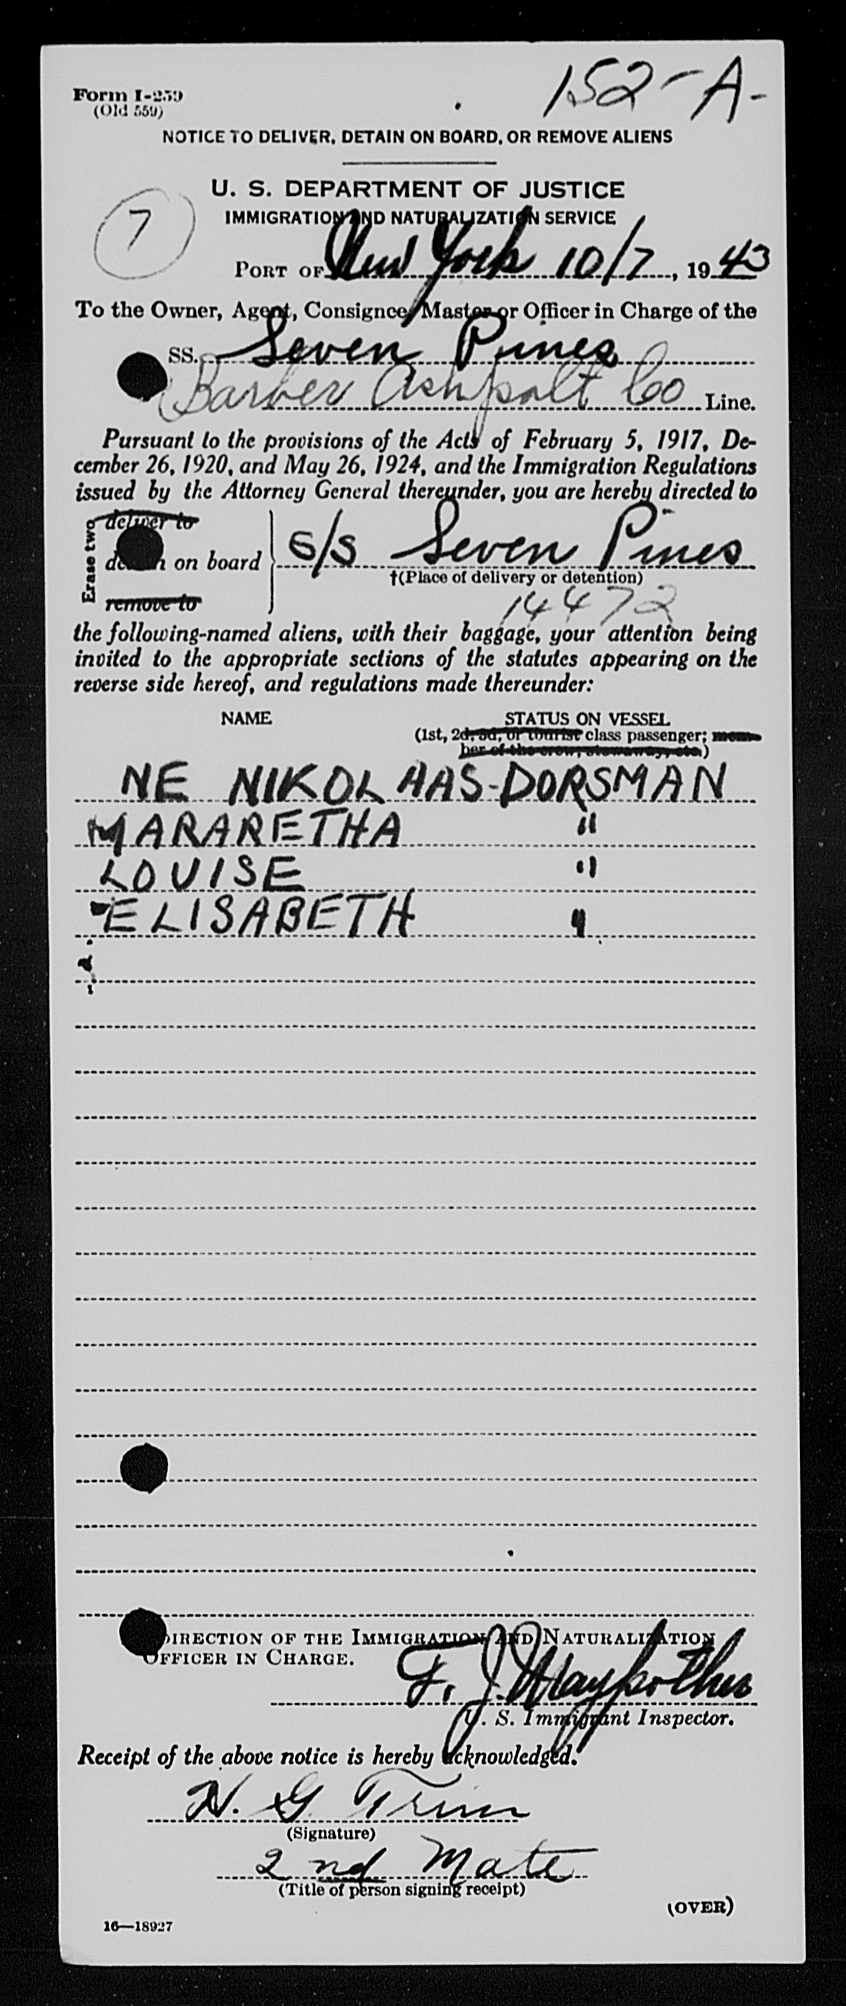 152-A-
Form I-259
(Old 559)
NOTICE TO DELIVER, DETAIN ON BOARD, OR REMOVE ALIENS
U. S. DEPARTMENT OF JUSTICE
7
IMMIGRATION AND NATURALIZATION SERVICE
PORT OF New York 10/7, 1943
To the Owner, Agent, Consignee, Master or Officer in Charge of the
SS. Seven Pines
Barber Ashpalt Co Line.
Pursuant to the provisions of the Acts of February 5, 1917, De-
cember 26, 1920, and May 26, 1924, and the Immigration Regulations
issued by the Attorney General thereunder, you are hereby directed to
Erase two
deliver to
detain on board S/S Seven Pines
†(Place of delivery or detention)
remove to
14472
the following-named aliens, with their baggage, your attention being
invited to the appropriate sections of the statutes appearing on the
reverse side hereof, and regulations made thereunder:
NAME STATUS ON VESSEL
(1st, 2d, 3d, or tourist class passenger; mem-
ber of the crew, stowaway, etc.)
NE NIKOLAAS-DORSMAN
MARARETHA "
LOUISE "
ELISABETH "
DIRECTION OF THE IMMIGRATION AND NATURALIZATION
OFFICER IN CHARGE.
F. J. Maypother
U. S. Immigrant Inspector.
Receipt of the above notice is hereby acknowledged.
H. G. Trim
(Signature)
2nd Mate
(Title of person signing receipt)
(OVER)
16—18927